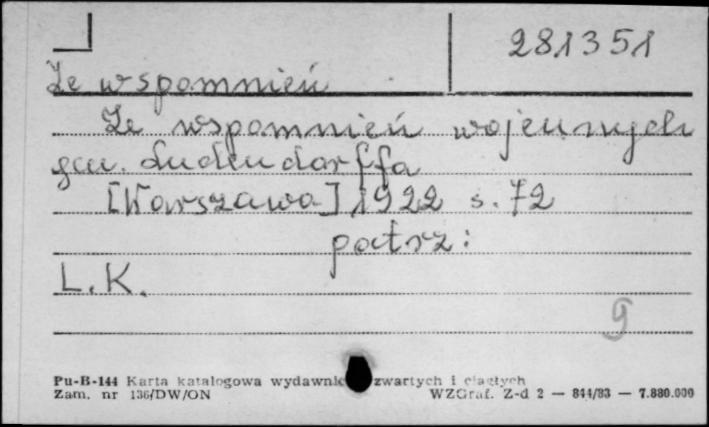 281351
Ze wspomnień
Ze wspomnień wojennych
gen. Ludendorffa
[Warszawa] 1922 s. 72
patrz:
L.K.
g
Pu-B-144 Karta katalogowa zwartych i ciągłych
Zam. nr 136/DW/ON WZGraf. Z-d 2 — 844/83 — 7.880.000